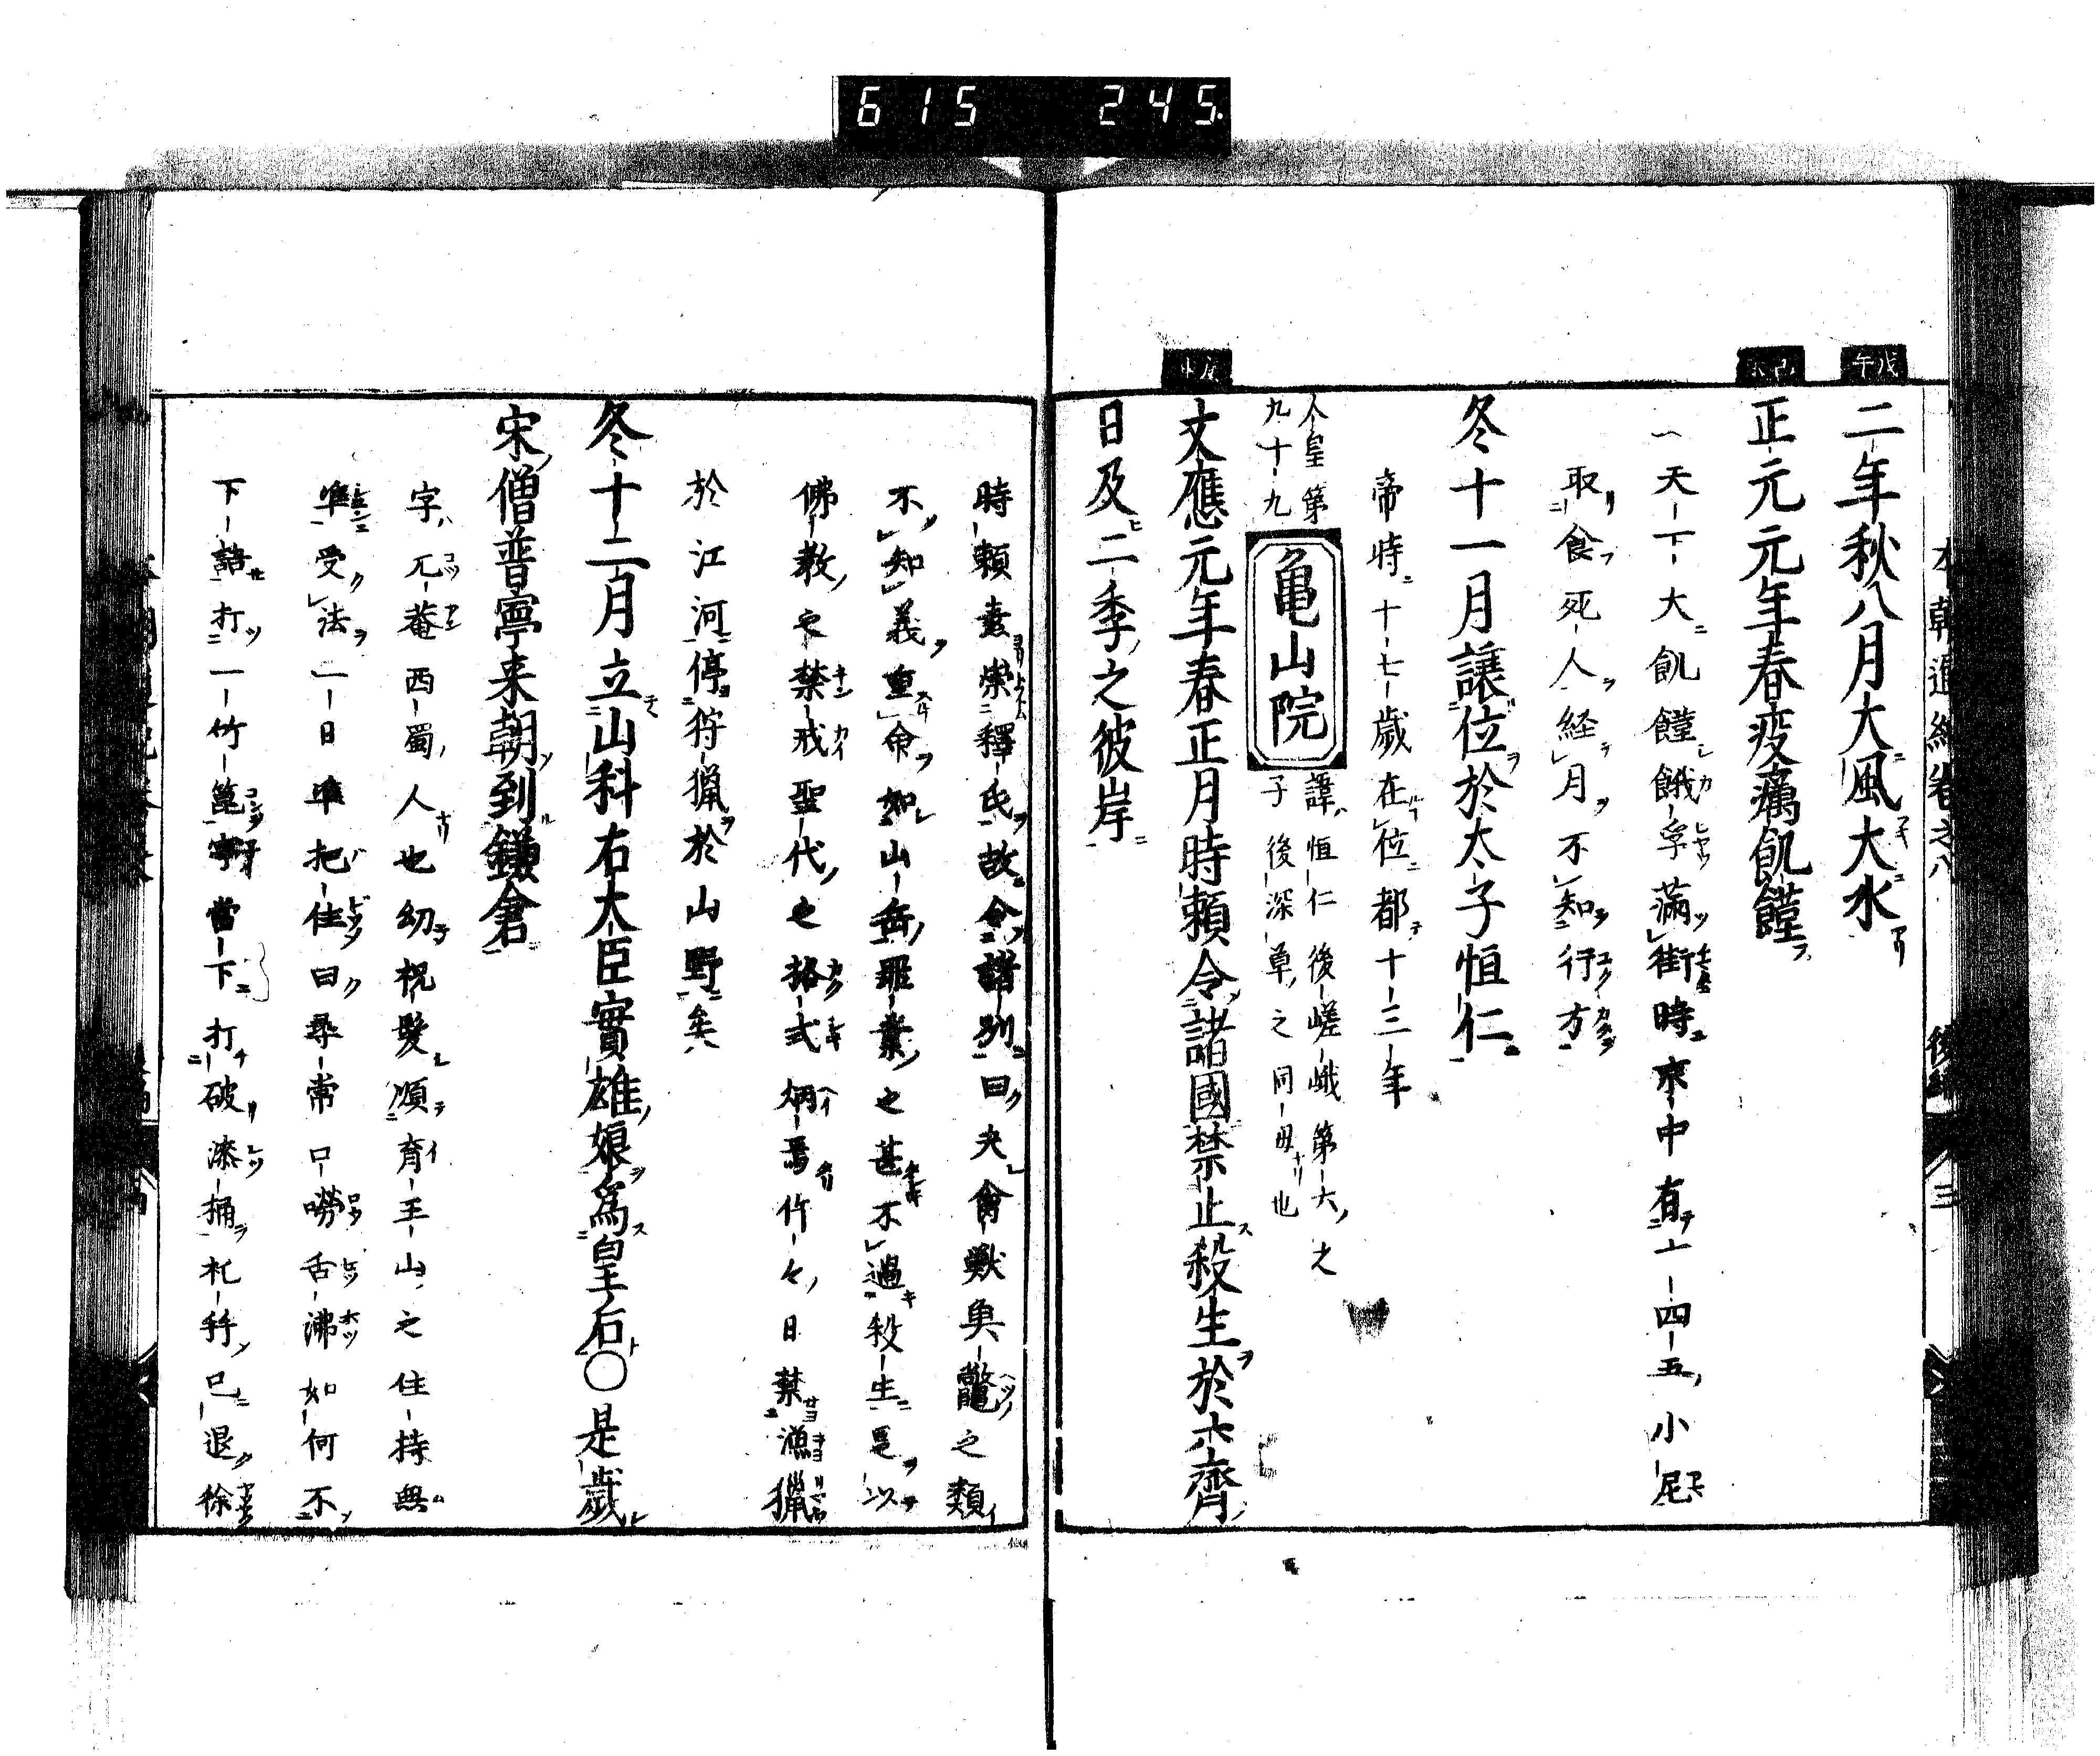 615 245.
本朝通紀卷之八 後編 三
戊午
二年秋八月大風大水
己未
正元元年春疫癘飢饉
一天下大飢饉餓莩滿街時京中有十四五小尼
取食死人経月不知行方
冬十一月讓位於太子恒仁
帝時十七歳在位都十三年
人皇第
九十九
亀山院
諱恒仁後嵯峨第六之
子後深草之同母也
庚申
文應元年春正月時頼令諸國禁止殺生於六齊
日及二季之彼岸
時頼素崇釋氏故令諸別曰夫禽獸魚鼈之類
不知義重命如山岳罪業之甚不過殺生是以
佛教之禁戒聖代之格式炳焉件々日禁漁獵
於江河停狩猟於山野矣
冬十二月立山科右大臣實雄娘爲皇后〇是歳
宋僧普寧来朝到鎌倉
字兀菴西蜀人也幼祝髮順育王山之住持無
準受法一日準把住曰尋常口嘮舌沸如何不
下語打一竹篦寧當下打破漆桶礼拜已退徐